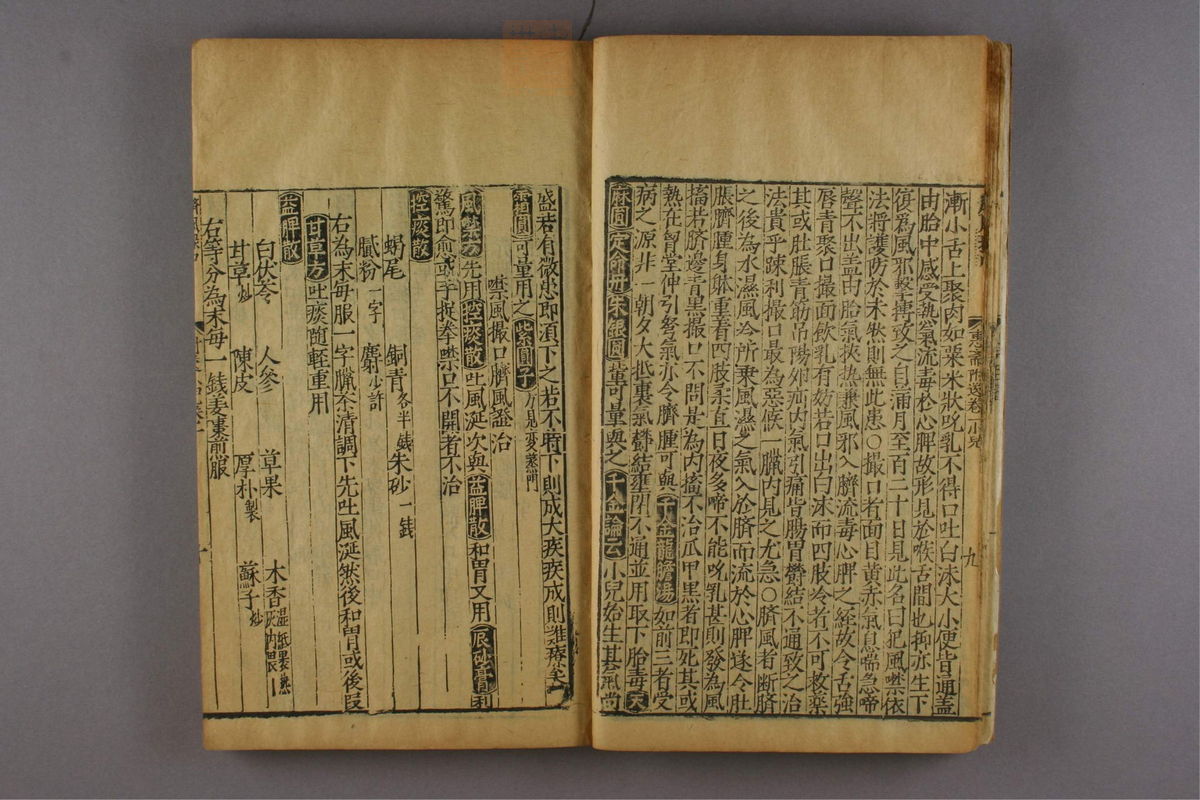 漸小舌上聚肉如粟米狀吮乳不得口吐白沫大小便皆通盖
由胎中感受熱氣流毒於心脾故形見於喉舌間也抑亦生下
復為風邪擊搏致之自滿月至百二十日見此名曰犯風噤依
法將護防於未然則無此患○撮口者面目黄赤氣息喘急啼
聲不出盖由胎氣挾熱兼風邪入臍流毒心脾之經故令舌強
唇青聚口撮面飲乳有妨若口出白沫而四肢冷者不可救藥
其或肚脹青筋吊陽卵疝内氣引痛皆腸胃欝結不通致之治
法貴乎疎利撮口最為惡候一臘内見之尤急○臍風者断臍
之後為水濕風冷所乗風濕之氣入於臍而流於心脾遂令肚
脹臍腫身躰重着四肢柔直日夜多啼不能吮乳甚則發為風
搐若臍邊青黒撮口不開是為内搐不治爪甲黒者即死其或
熱在胷堂伸引弩氣亦令臍腫可與千金龍膽湯如前三者受
病之源非一朝夕大抵裏氣欝結壅閉不通並用取下胎毒天
麻圓定命丹朱銀圓輩可量與之千金論云小兒始生其氣尚
盛若有微患即湏下之若不時下則成大疾疾成則難療矣
紫霜圓可量用之紫圓子方見变蒸門
噤風撮口臍風證治
風噤方先用控痰散吐風涎次與益脾散和胃又用辰砂膏利
驚即愈或手捉拳噤口不開者不治
控痰散
蝎尾 銅青各半錢 朱砂一錢
膩粉一字 麝少許
右為末每服一字臘茶清調下先吐風涎然後和胃或後段
甘草方吐痰随軽重用
益脾散
白伏苓 人參 草果 木香湿紙裹炮
甘草炒 陳皮 厚朴製 蘇子炒
右等分為末每一錢姜棗煎服
九